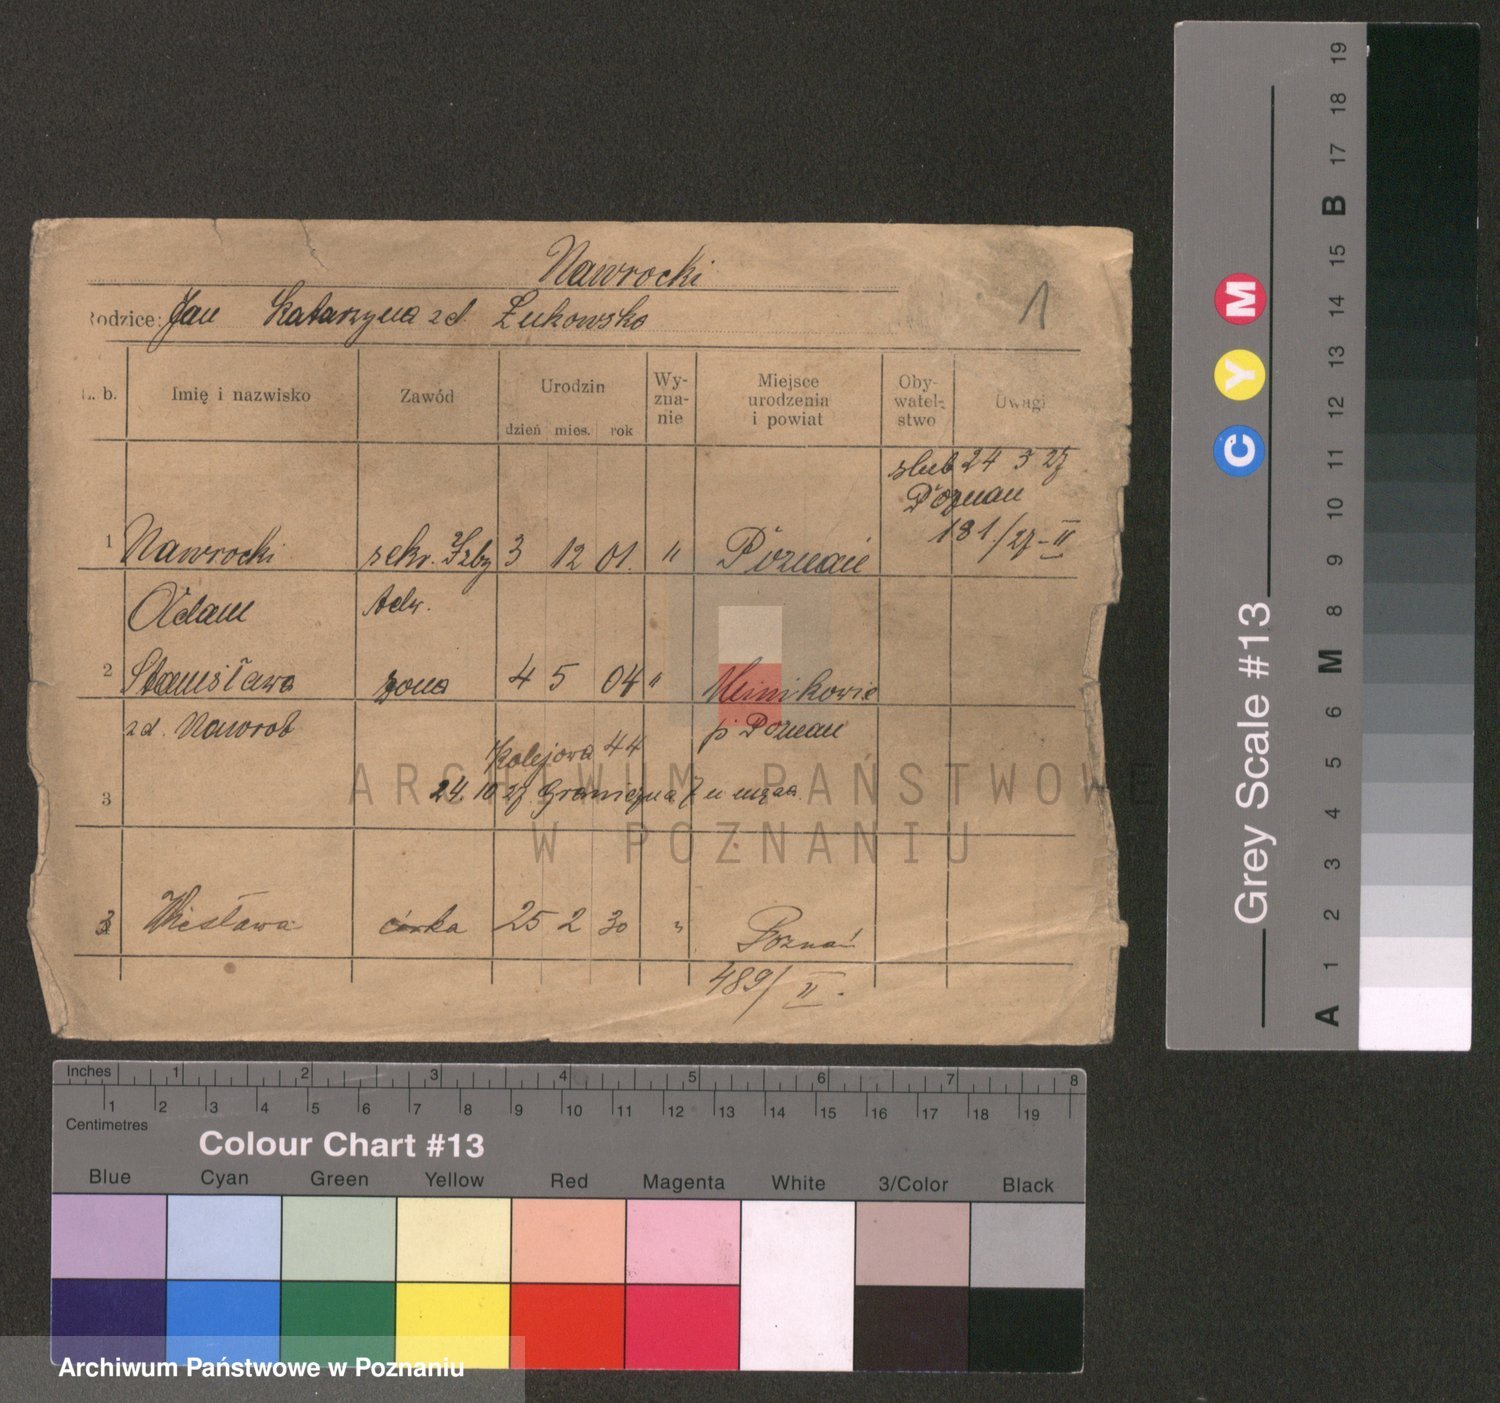 Nawrocki
1
Rodzice: Jan Katarzyna zd. Żukowska
L. b. Imię i nazwisko Zawód Urodzin dzień mies. rok Wy-zna-nie Miejsce urodzenia i powiat Oby-watel-stwo Uwagi
ślub 24 3 27
Poznań
181/27-II
1 Nawrocki sekr. Izby 3 12 01. " Poznań
Adam Adw.
2 Stanisława żona 4 5 04 "
zd. Nawrot p. Poznań
Kolejowa 44
3 24. 10 27 Graniczna 7 u męża
3 Wiesława córka 25 2 30 " Poznań
489/II.
ARCHIWUM PAŃSTWOWE
W POZNANIU
Inches 1 2 3 4 5 6 7 8
1 2 3 4 5 6 7 8 9 10 11 12 13 14 15 16 17 18 19
Centimetres
Colour Chart #13
Blue Cyan Green Yellow Red Magenta White 3/Color Black
Archiwum Państwowe w Poznaniu
Grey Scale #13
C Y M
A 1 2 3 4 5 6 M 8 9 10 11 12 13 14 15 B 17 18 19